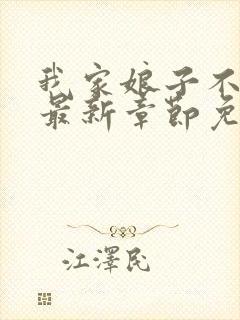 我家娘子不
最新章节免
江澤民